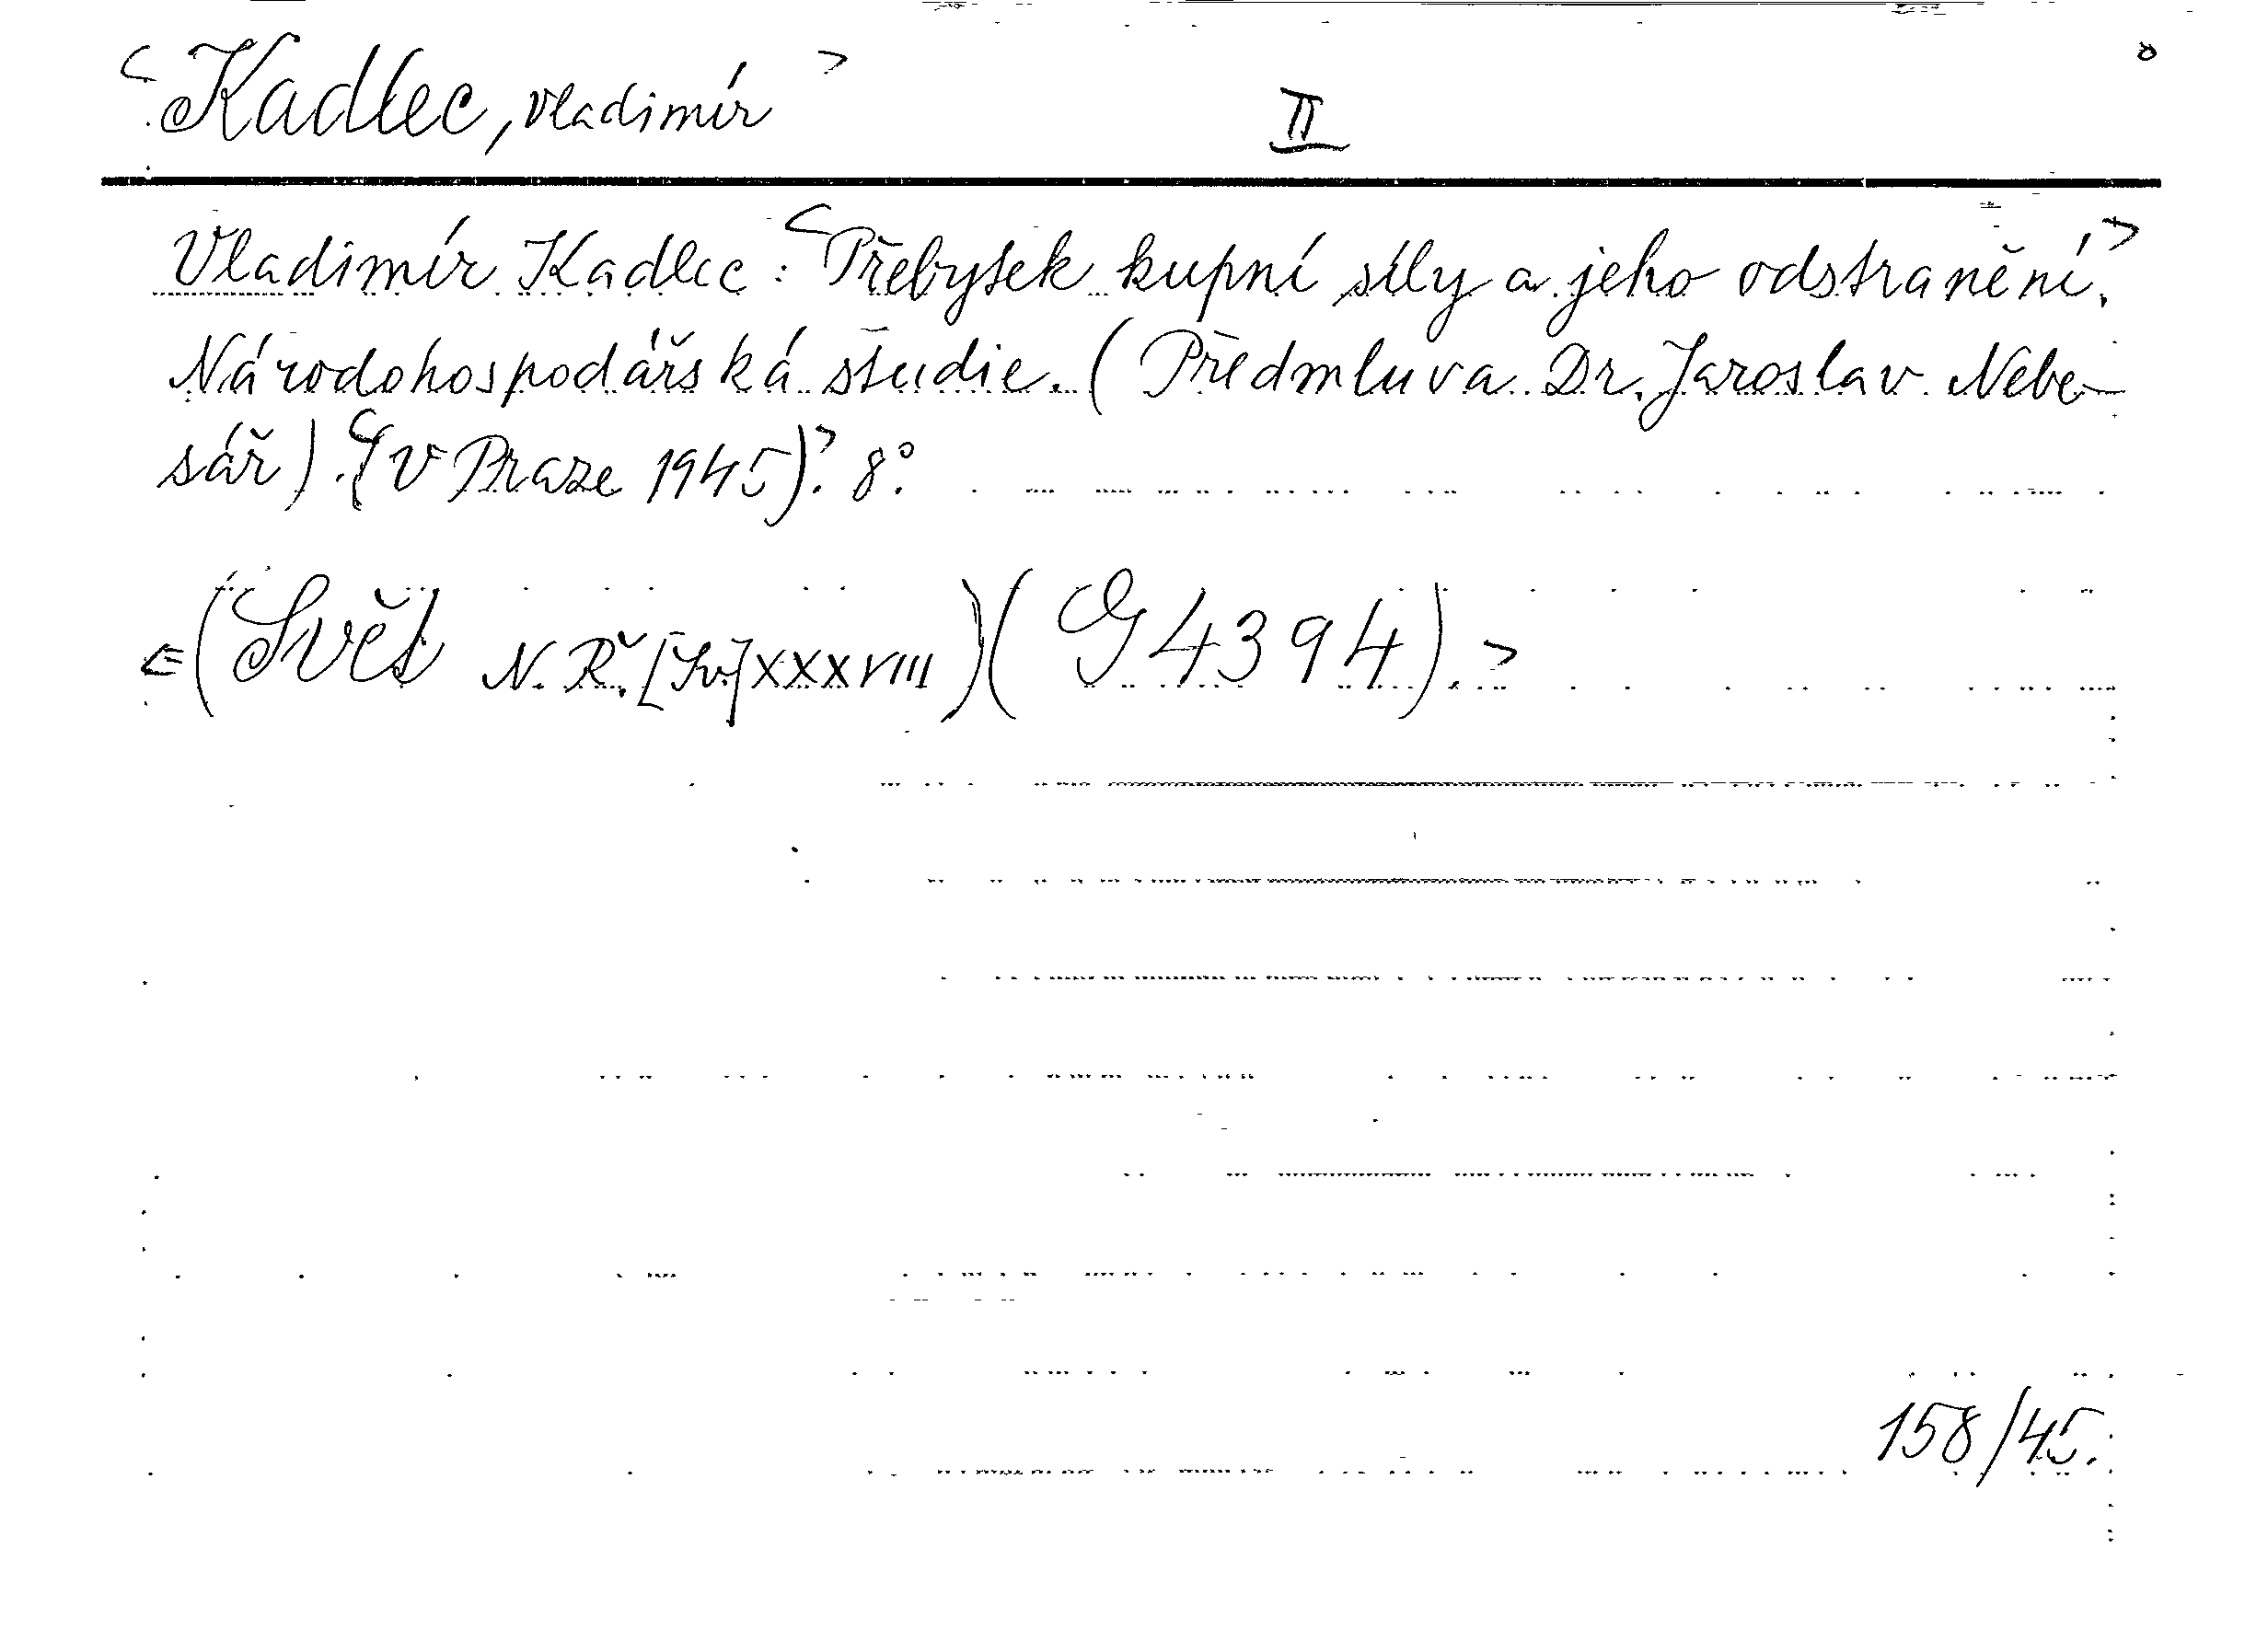 <Kadlec, Vladimír> II
Vladimír Kadlec: <Přebytek kupní síly a jeho odstranění.>
Národohospodářská studie. (Předmluva Dr. Jaroslav Nebe-
sář). <(V Praze 1945)>. 8°.
<(Svět N. Ř. [Sv.] XXXVIII) (G 4394).>
158/45.